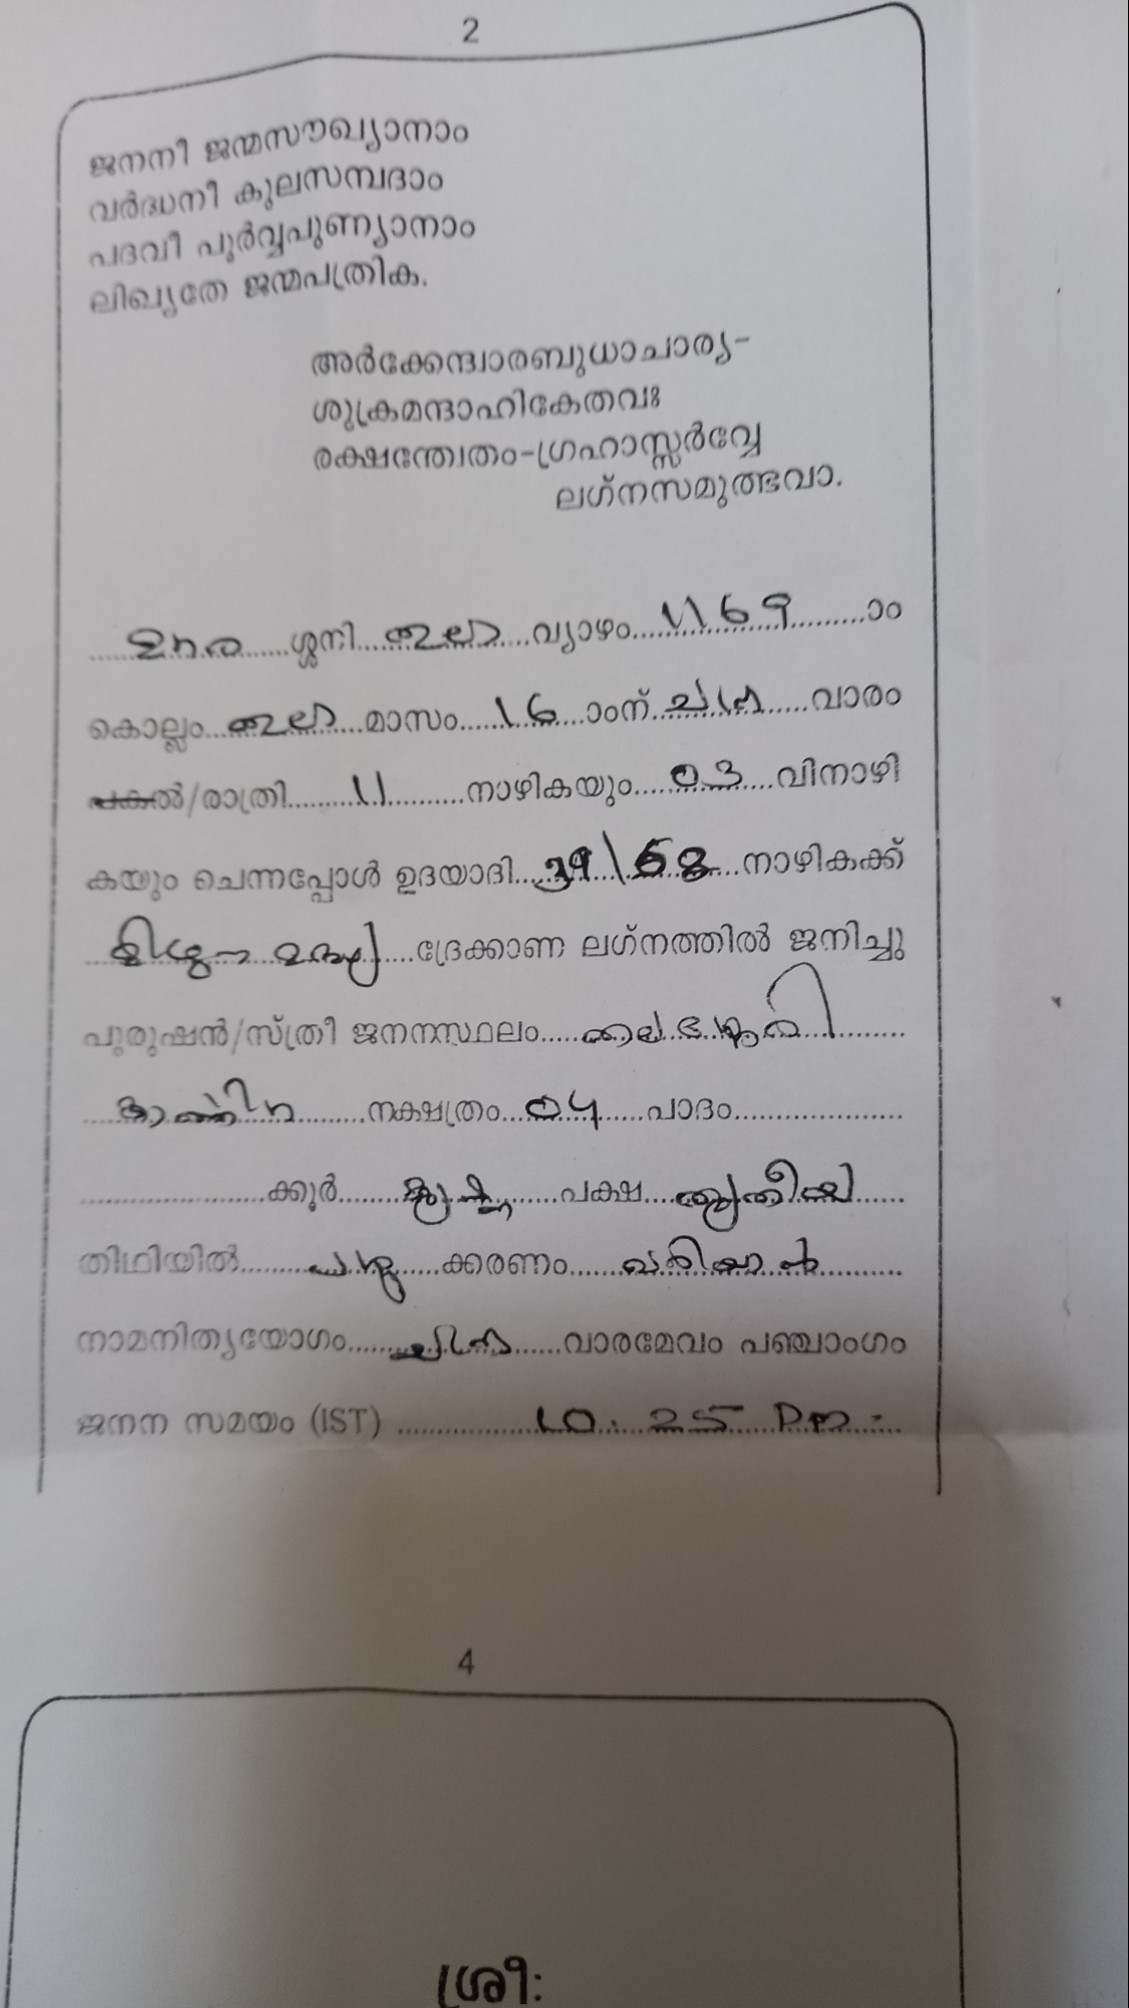 2
ജനനീ ജന്മസൗഖ്യാനാം
വർദ്ധനീ കുലസമ്പദാം
പദവീ പൂർവ്വപുണ്യാനാം
ലിഖ്യതേ ജന്മപത്രിക.
അർക്കേന്ദ്വാരബുധാചാര്യ-
ശുക്രമന്ദാഹികേതവഃ
രക്ഷന്ത്വേതം-ഗ്രഹാസ്സർവ്വേ
ലഗ്നസമുത്ഭവാ.
.....ശ്ശനി....തുലാ....വ്യാഴം....1169.....ാം
കൊല്ലം...തുലാ....മാസം....16....ാംന്.........വാരം
പകൽ/രാത്രി.....11.....നാഴികയും....03....വിനാഴി
കയും ചെന്നപ്പോൾ ഉദയാദി..........നാഴികക്ക്
മിഥുന മദ്ധ്യ....ദ്രേക്കാണ ലഗ്നത്തിൽ ജനിച്ചു
പുരുഷൻ/സ്ത്രീ ജനനസ്ഥലം.....
.....നക്ഷത്രം...04....പാദം.....
.....ക്കൂർ.....കൃഷ്ണ.....പക്ഷ....തൃതീയ.....
തിഥിയിൽ.....പശു....ക്കരണം.....വരിയാൻ.....
നാമനിത്യയോഗം..........വാരമേവം പഞ്ചാംഗം
ജനന സമയം (IST) .....10.25 PM.
4
ശ്രീ: